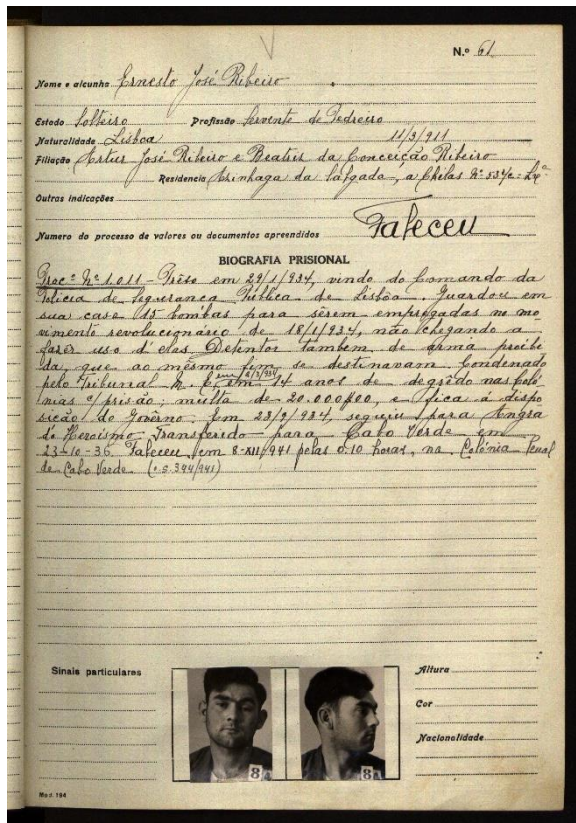 N.º 61
Nome e alcunha Ernesto José Ribeiro
Estado Solteiro Profissão Servente de Pedreiro
Naturalidade Lisboa 11/3/911
Filiação Artur José Ribeiro e Beatriz da Conceição Ribeiro
Residencia Azinhaga da Salgada, a Chelas Nº
Outras indicações
Faleceu
Numero do processo de valores ou documentos apreendidos
BIOGRAFIA PRISIONAL
Procº Nº 1.011 - Prêso em 29/1/934, vindo do Comando da
Policia de Segurança Pública de Lisboa. Guardou em
sua casa 15 bombas para serem empregadas no mo
vimento revolucionário de 18/1/934, não chegando a
fazer uso d'elas. Detentor tambem de arma proibi
da, que ao mesmo fim se destinavam. Condenado
pelo Tribunal M. E. em 14 anos de degrêdo nas coló
nias c/ prisão; multa de 20.000$00, e fica á dispo
sição do Govêrno. Em 23/9/934, seguiu para Angra
do Heroismo. Transferido para Cabo Verde em
23-10-36. Faleceu em 8-XII/941 pelas 0,10 horas, na Colónia Penal
de Cabo Verde (o.s. 344/941)
Sinais particulares
Altura
Côr
Nacionalidade
8
8
Mod. 194